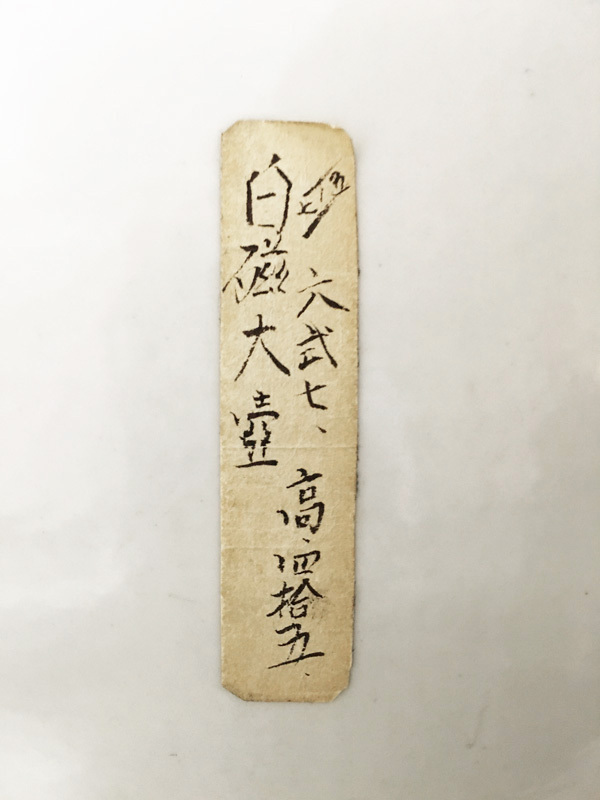 六弐七、高、四拾五、
白磁大壷